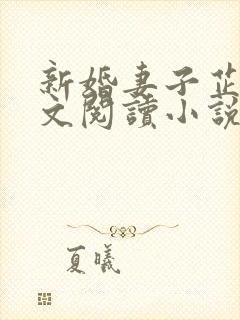 新婚妻子芷
文閱讀小說
夏曦